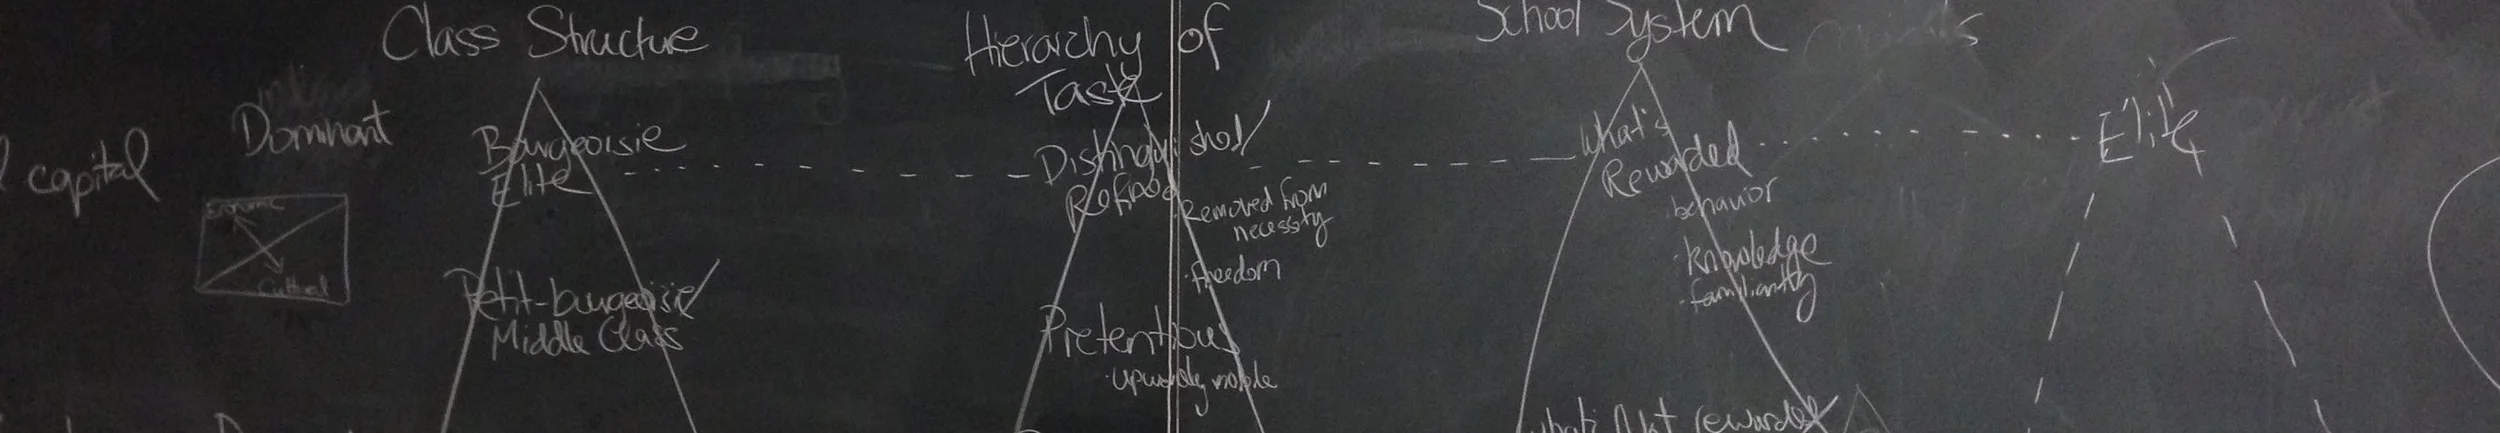 Class Structure
Hierarchy of
Taste
School System
Dominant
capital
Economic
Cultural
Bourgeoisie
Elite
Petit-bourgeoisie/
Middle Class
Distinguished/
Refined
Removed from
necessity
· freedom
Pretentious
· upwardly mobile
What's
Rewarded
· behavior
· knowledge
· familiarity
what's Not rewarded
Elite